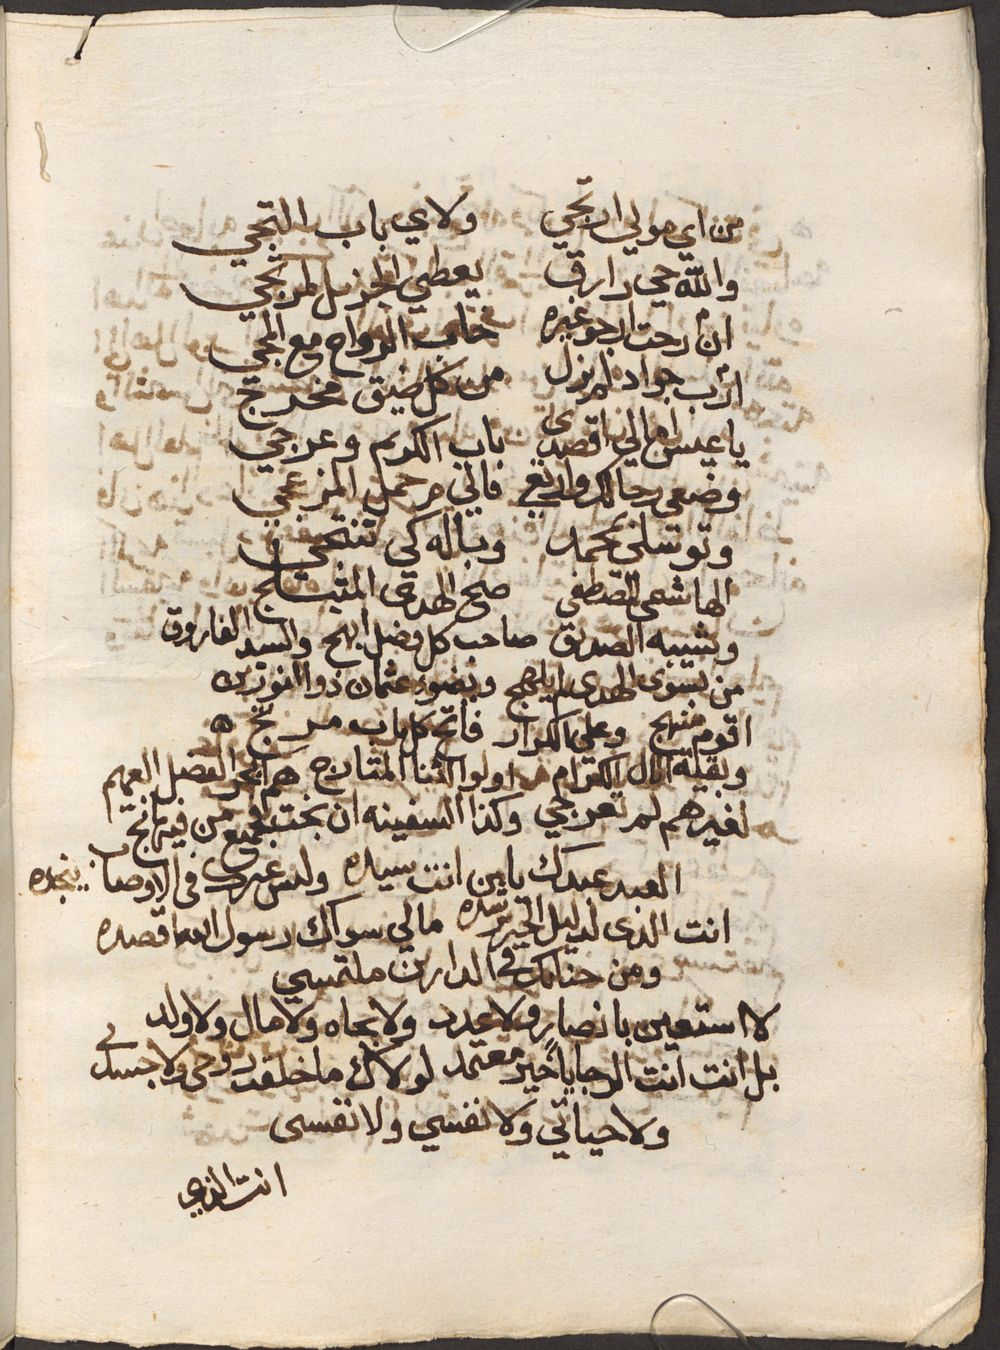 من اي مولي ارتجي ولاي باب التجي
والله حي رازق يعطي الجزيل لمرتجي
ان رحت ارجو غيره خاب الرواح مع المجي
ارب جواد لم يزل من كل ضيق مخرج
يا عيس امالي اقصدي باب الكريم وعرجي
وضعي رحالك وانفي فالي م حمل المزعجي
وتوسلي بمحمد وباله كي تنتجي
الهاشمي المصطفى صبح الهدى المتبلج
وبشيبه الصديق صاحب كل فضل ابهج والسيد الفاروق
من بسوى الهدى لم يلهج وبصهره عثمان ذو النورين
اقوم منهج وعلي الكرار فاتح كل باب مرتج ه
وبقية الال الكرام اولوا الثنا المتارج هم ابحر الفضل العميم
لغيرهم لم تعرجي وكذا السفينه ان نجت فجميع من فيها نجي
العبد عبدك يا من انت سيده وليس غيرك في الاوصاب ينجده
انت الذي لدليل الخير ترشده مالي سواك رسول الله اقصده
ومن حنانك في الدارين ملتمسي
لا استعين بانصار ولا عدد ولا بجاه ولا مال ولا ولد
بل انت انت الرجا يا خير معتمد لولاك ما خلقت روحي ولا جسدي
ولا حياتي ولا نفسي ولا نفسى
انت الذي